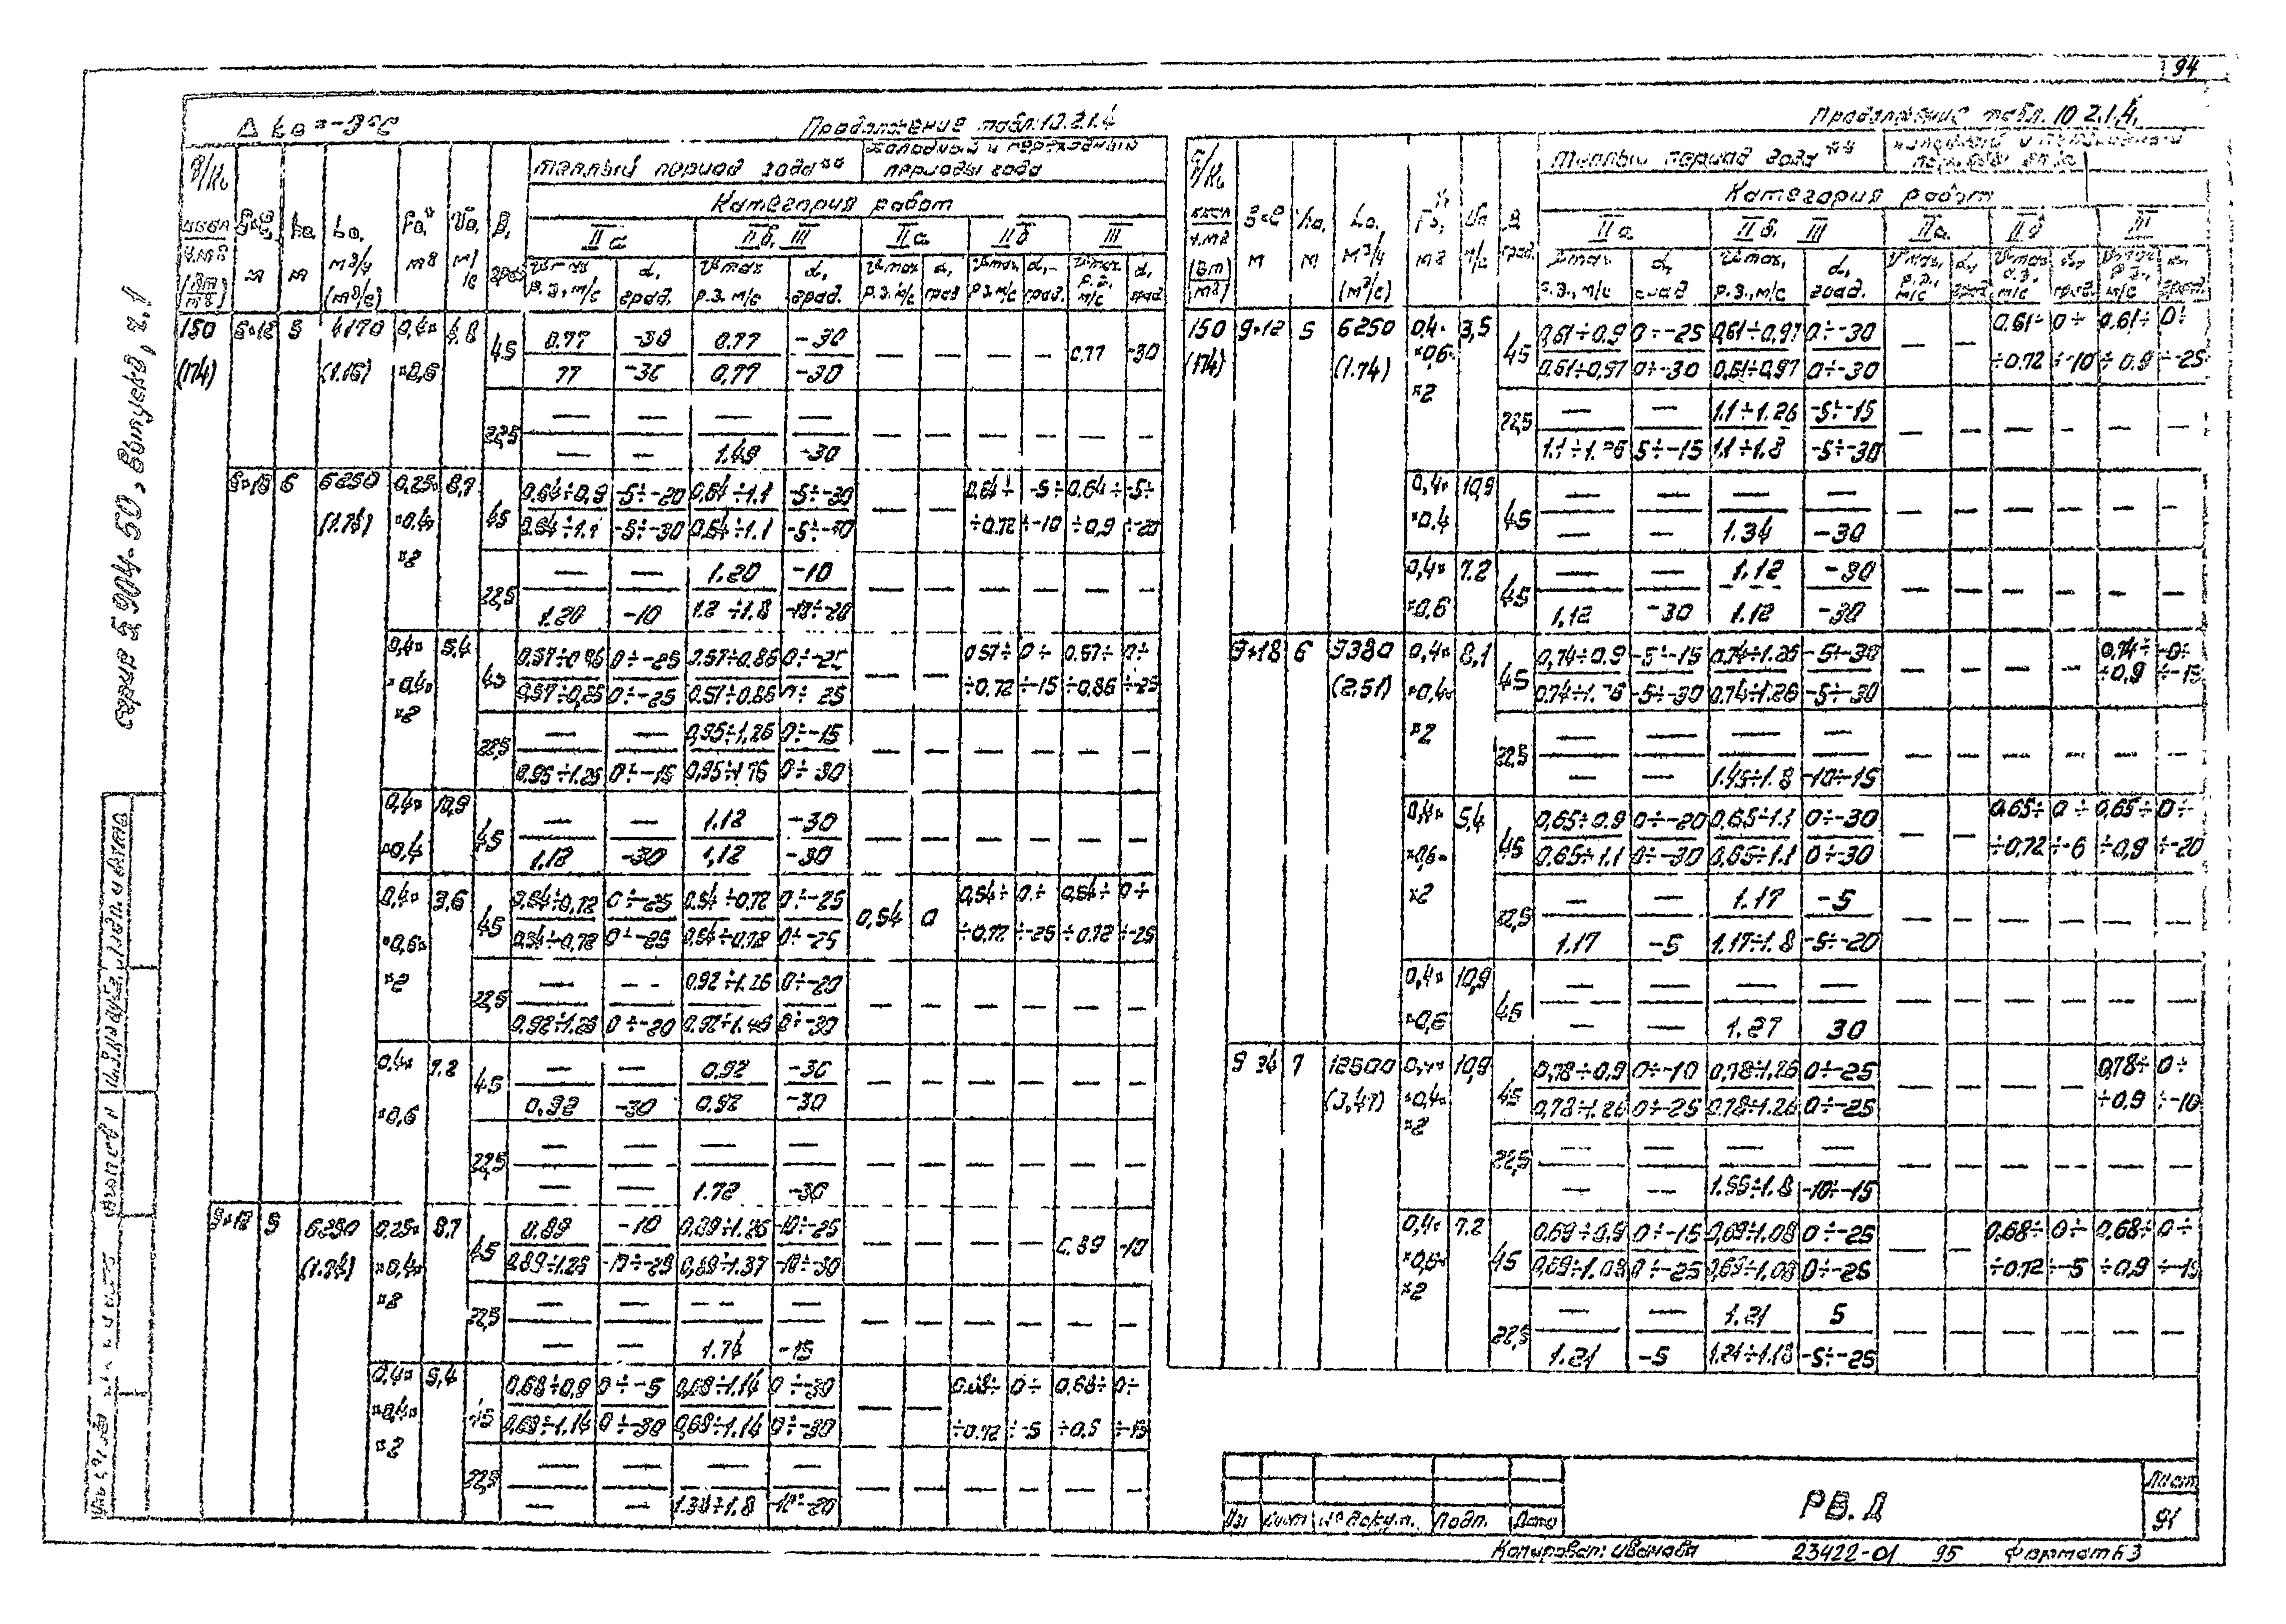 94
Δ to = -3°C
Продолжение табл. 10.2.1.4
теплый период года** холодный и переходный периоды года
Категория работ
IIа IIб, III IIа IIб III
м м м³/ч (м³/с) м² м/с град
р.з., м/с град. р.з. м/с град. р.з. м/с град р.з. м/с град. р.з. м/с град
150 6×12 5 4170 0,4× 4,8 45 0.77 -30 0.77 -30 — — — — 0.77 -30
(174) (1.16) ×0,6 77 -30 0,77 -30
22,5 — — — — — — — — — —
— — 1.49 -30
6×18 6 6250 0,25× 8,7 45 0.64÷0,9 -5÷-20 0,64÷1.1 -5÷-30 — — 0,64÷ -5÷ 0.64÷ -5÷
(1.74) ×0,4× 0.64÷1.1 -5÷-30 0,64÷1.1 -5÷-30 ÷0.72 ÷-10 ÷0,9 ÷-20
×2 22,5 — — 1.20 -10 — — — — — —
1.20 -10 1.2÷1.8 -10÷-20
0,4× 5,4 45 0,57÷0,86 0÷-25 0.57÷0.86 0÷-25 — — 0.57÷ 0÷ 0.57÷ 0÷
×0,4× 0,57÷0,86 0÷-25 0.57÷0.86 0÷-25 ÷0.72 ÷-15 ÷0,86 ÷-25
×2 22,5 — — 0,95÷1,26 0÷-15 — — — — — —
0.95÷1.26 0÷-15 0,95÷1.76 0÷-30
0,4× 10,9 45 — — 1.12 -30 — — — — — —
×0,4 1.12 -30 1,12 -30
0,4× 3,6 45 0,54÷0,72 0÷-25 0.54÷0.72 0÷-25 0,54 0 0,54÷ 0÷ 0,54÷ 0÷
×0,6× 0,54÷0,72 0÷-25 0.54÷0.72 0÷-25 ÷0.72 ÷-25 ÷0.72 ÷-25
×2 22,5 — — 0.92÷1.26 0÷-20 — — — — — —
0.92÷1.26 0÷-20 0.92÷1.46 0÷-30
0,4× 7.2 45 — — 0.92 -30 — — — — — —
×0,6 0,92 -30 0.92 -30
22,5 — — — — — — — — — —
— — 1.72 -30
9×12 5 6250 0,25× 8.7 45 0.89 -10 0,89÷1.26 -10÷-25 — — — — 0.89 -10
(1.74) ×0,4× 0.89÷1.26 -10÷-25 0,89÷1.37 -10÷-30
×2 22,5 — — — — — — — — — —
— — 1.74 -15
0,4× 5,4 45 0,68÷0,9 0÷-5 0,68÷1.14 0÷-30 — — 0.68÷ 0÷ 0.68÷ 0÷
×0,4× 0,68÷1.14 0÷-30 0,68÷1.14 0÷-30 ÷0.72 ÷-5 ÷0,9 ÷-15
×2 22,5 — — — — — — — — — —
— — 1.34÷1.8 -10÷-20
Продолжение табл. 10.2.1.4.
Теплый период года** холодный и переходный периоды года
Категория работ
IIа IIб, III IIа. IIб III
м м м³/ч (м³/с) м² м/с град.
р.з., м/с град р.з., м/с град. р.з., м/с град. р.з., м/с град. р.з., м/с град.
150 9×12 5 6250 0,4× 3,5 45 0,61÷0,9 0÷-25 0,61÷0,97 0÷-30 — — 0.61÷ 0÷ 0,61÷ 0÷
(174) (1.74) ×0,6× 0,61÷0,97 0÷-30 0,61÷0,97 0÷-30 ÷0.72 ÷-10 ÷0.9 ÷-25
×2 22,5 — — 1.1÷1.26 -5÷-15 — — — — — —
1.1÷1.26 5÷-15 1.1÷1.8 -5÷-30
0,4× 10,9 45 — — — — — — — — — —
×0,4 — — 1.34 -30
0,4× 7.2 45 — — 1.12 -30 — — — — — —
×0,6 1,12 -30 1.12 -30
9×18 6 9380 0,4× 8,1 45 0,74÷0.9 -5÷-15 0.74÷1.26 -5÷-30 — — — — 0,74÷ -0÷
(2.61) ×0,4× 0.74÷1.26 -5÷-30 0.74÷1.26 -5÷-30 ÷0,9 ÷-15
×2 22,5 — — — — — — — — — —
— — 1.45÷1.8 -10÷-15
0,4× 5,4 45 0,65÷0.9 0÷-20 0,65÷1.1 0÷-30 — — 0,65÷ 0÷ 0,65÷ 0÷
×0,6× 0.65÷1.1 0÷-30 0,65÷1.1 0÷-30 ÷0,72 ÷-6 ÷0,9 ÷-20
×2 22,5 — — 1.17 -5 — — — — — —
1.17 -5 1.17÷1.8 -5÷-20
0,4× 10,9 45 — — — — — — — — — —
×0,6 — — 1.27 30
9 34 7 12500 0,4× 10,9 45 0,78÷0,9 0÷-10 0,78÷1,26 0÷-25 — — — — 0,78÷ 0÷
(3,47) ×0,4× 0,78÷1.26 0÷-25 0.78÷1.26 0÷-25 ÷0.9 ÷-10
×2 22,5 — — — — — — — — — —
— — 1.55÷1.8 -10÷-15
0,4× 7.2 45 0.69÷0,9 0÷-15 0,69÷1.08 0÷-25 — — 0,68÷ 0÷ 0,68÷ 0÷
×0,6× 0,69÷1.08 0÷-25 0,69÷1.08 0÷-25 ÷0.72 ÷-5 ÷0,9 ÷-15
×2 22,5 — — 1.21 5 — — — — — —
1.21 -5 1.21÷1.18 -5÷-25
серия 5.904-50, Выпуск 0, ч.1
Изм Лист № докум. Подп. Дата
РВ.Д
Лист
91
Копировал: Иванова 23422-01 95 Формат А3